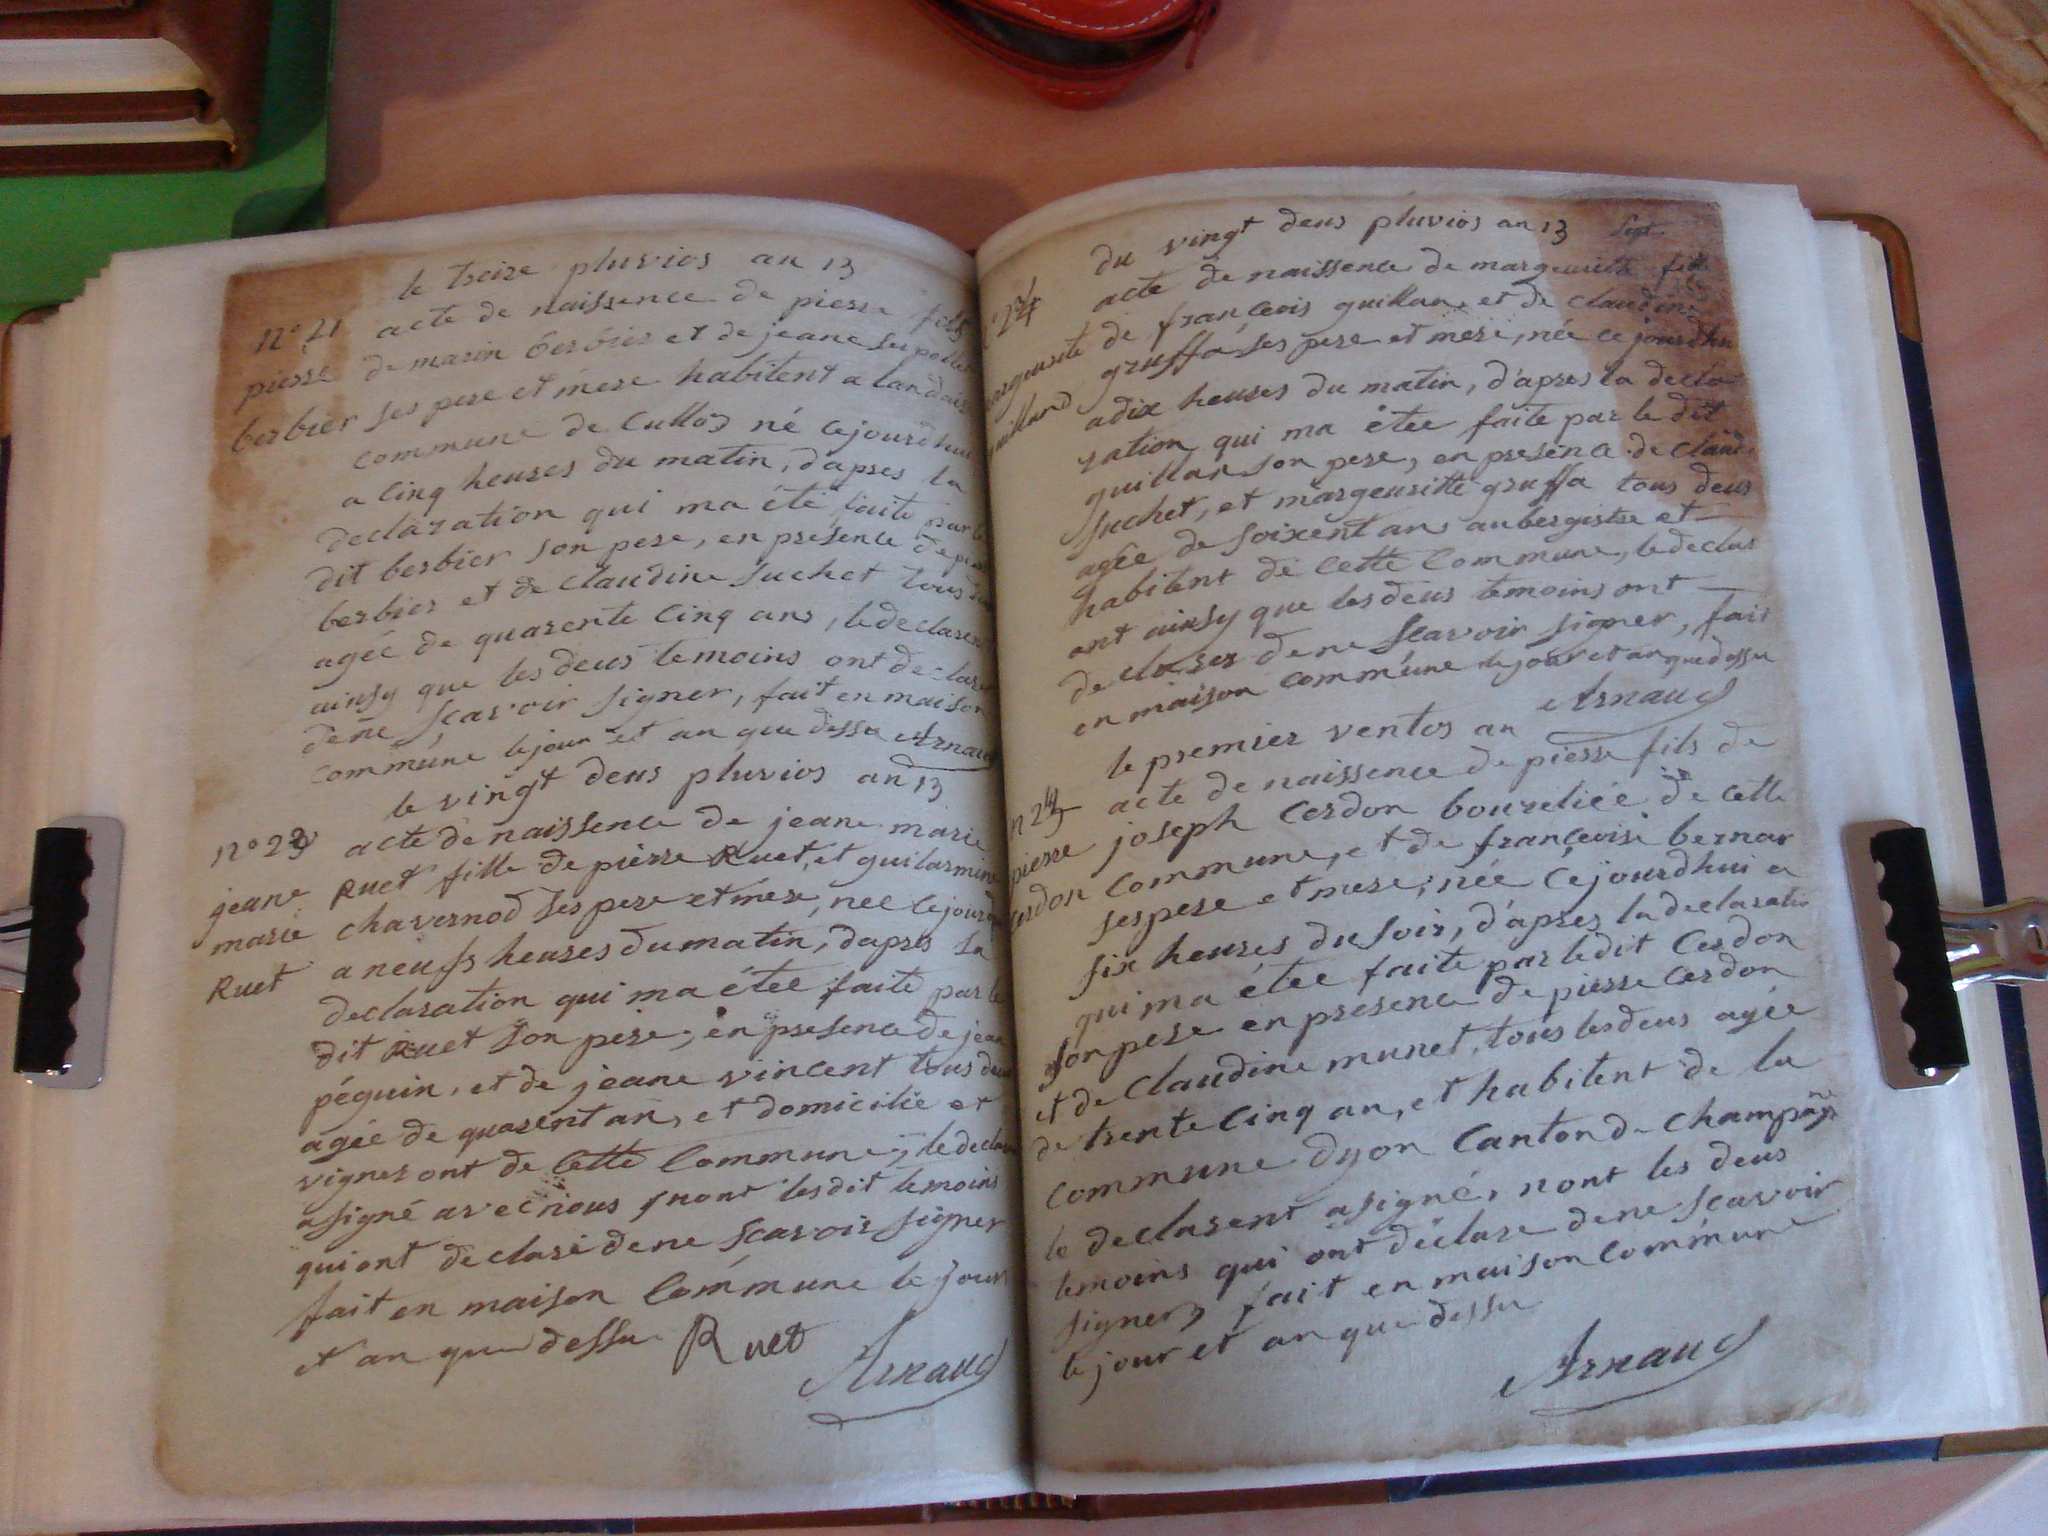 le treize pluvios an 13
n° 21 acte de naissence de pierre fils
pierre de marin berbier et de jeane
berbier ses pere et mere habitent a landais
commune de Culloz né cejourdhui
a cinq heures du matin, dapres la
declaration qui ma été faite par le
dit berbier son pere, en presence de
berbier et de claudine suchet tous
agée de quarente cinq ans, le declarent
ainsy que les deus temoins ont declare
dene scavoir signer, fait en maison
commune lejour et an que dessu Arnaud
le vingt deus pluvios an 13
n° 23 acte de naissence de jeane marie
jeane Ruet fille de pierre Ruet, et guilarmine
marie chavernod ses pere et mere, neé cejour
Ruet a neufs heures du matin, dapres la
declaration qui ma étee faite par le
dit Ruet son pere, en presence de jean
péguin, et de jeane vincent tous deus
agée de quarent an, et domicilié et
vigneront de cette commune, le declar
a signé avec nous, nont lesdit temoins
qui ont declaré dene scavoir signer
fait en maison commune le jour
et an que dessu Ruet
Arnaud
du vingt deus pluvios an 13
acte de naissence de margeurite
margeurite de françois guillan et de claudine
guilland gruffa ses pere et mere, née cejourdhui
a dix heures du matin, d'apres la decla
ration qui ma étee faite par le dit
guillar son pere, en presence de claude
suchet, et margeuritte gruffa tous deus
agée de soixent ans aubergistre et
habitent de cette commune, le declar
ont ainsy que les deus temoins ont
declarer dene scavoir signer, fait
en maison commune lejour et an que dessu
Arnaud
le premier ventos an
acte de naissence de pierre fils de
pierre joseph Cerdon boureliée de cette
cerdon commune, et de françoise bernar
ses pere et mere, née cejourdhui a
six heures du soir, d'apres la declaratio
qui ma étee faite par ledit Cerdon
son pere en presence de pierre cerdon
et de claudine munet, tous les deus agée
de trente cinq an, et habitent de la
commune dyon Canton de champagne
le declarent a signé, nont les deus
temoins qui ont déclare dene scavoir
signer, fait en maison commune
le jour et an que dessu
Arnaud